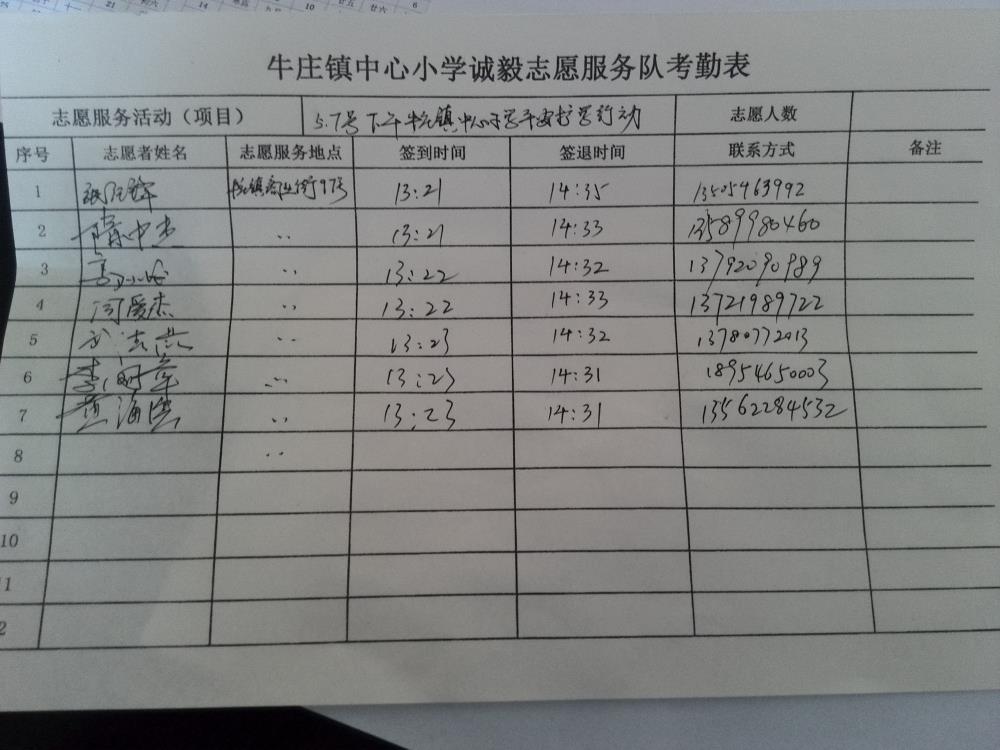 牛庄镇中心小学诚毅志愿服务队考勤表
志愿服务活动（项目） 5.7号下午牛庄镇中心小学平安护学行动 志愿人数
序号 志愿者姓名 志愿服务地点 签到时间 签退时间 联系方式 备注
1 牛庄镇商业街97号 13:21 14:35 13505463992
2 隋中杰 〃 13:21 14:33 13589980460
3 〃 13:22 14:32 13792090989
4 闫爱杰 〃 13:22 14:33 13721989722
5 〃 13:23 14:32 13780772013
6 〃 13:23 14:31 18954650003
7 〃 13:23 14:31 13562284532
8 〃
9
10
11
2